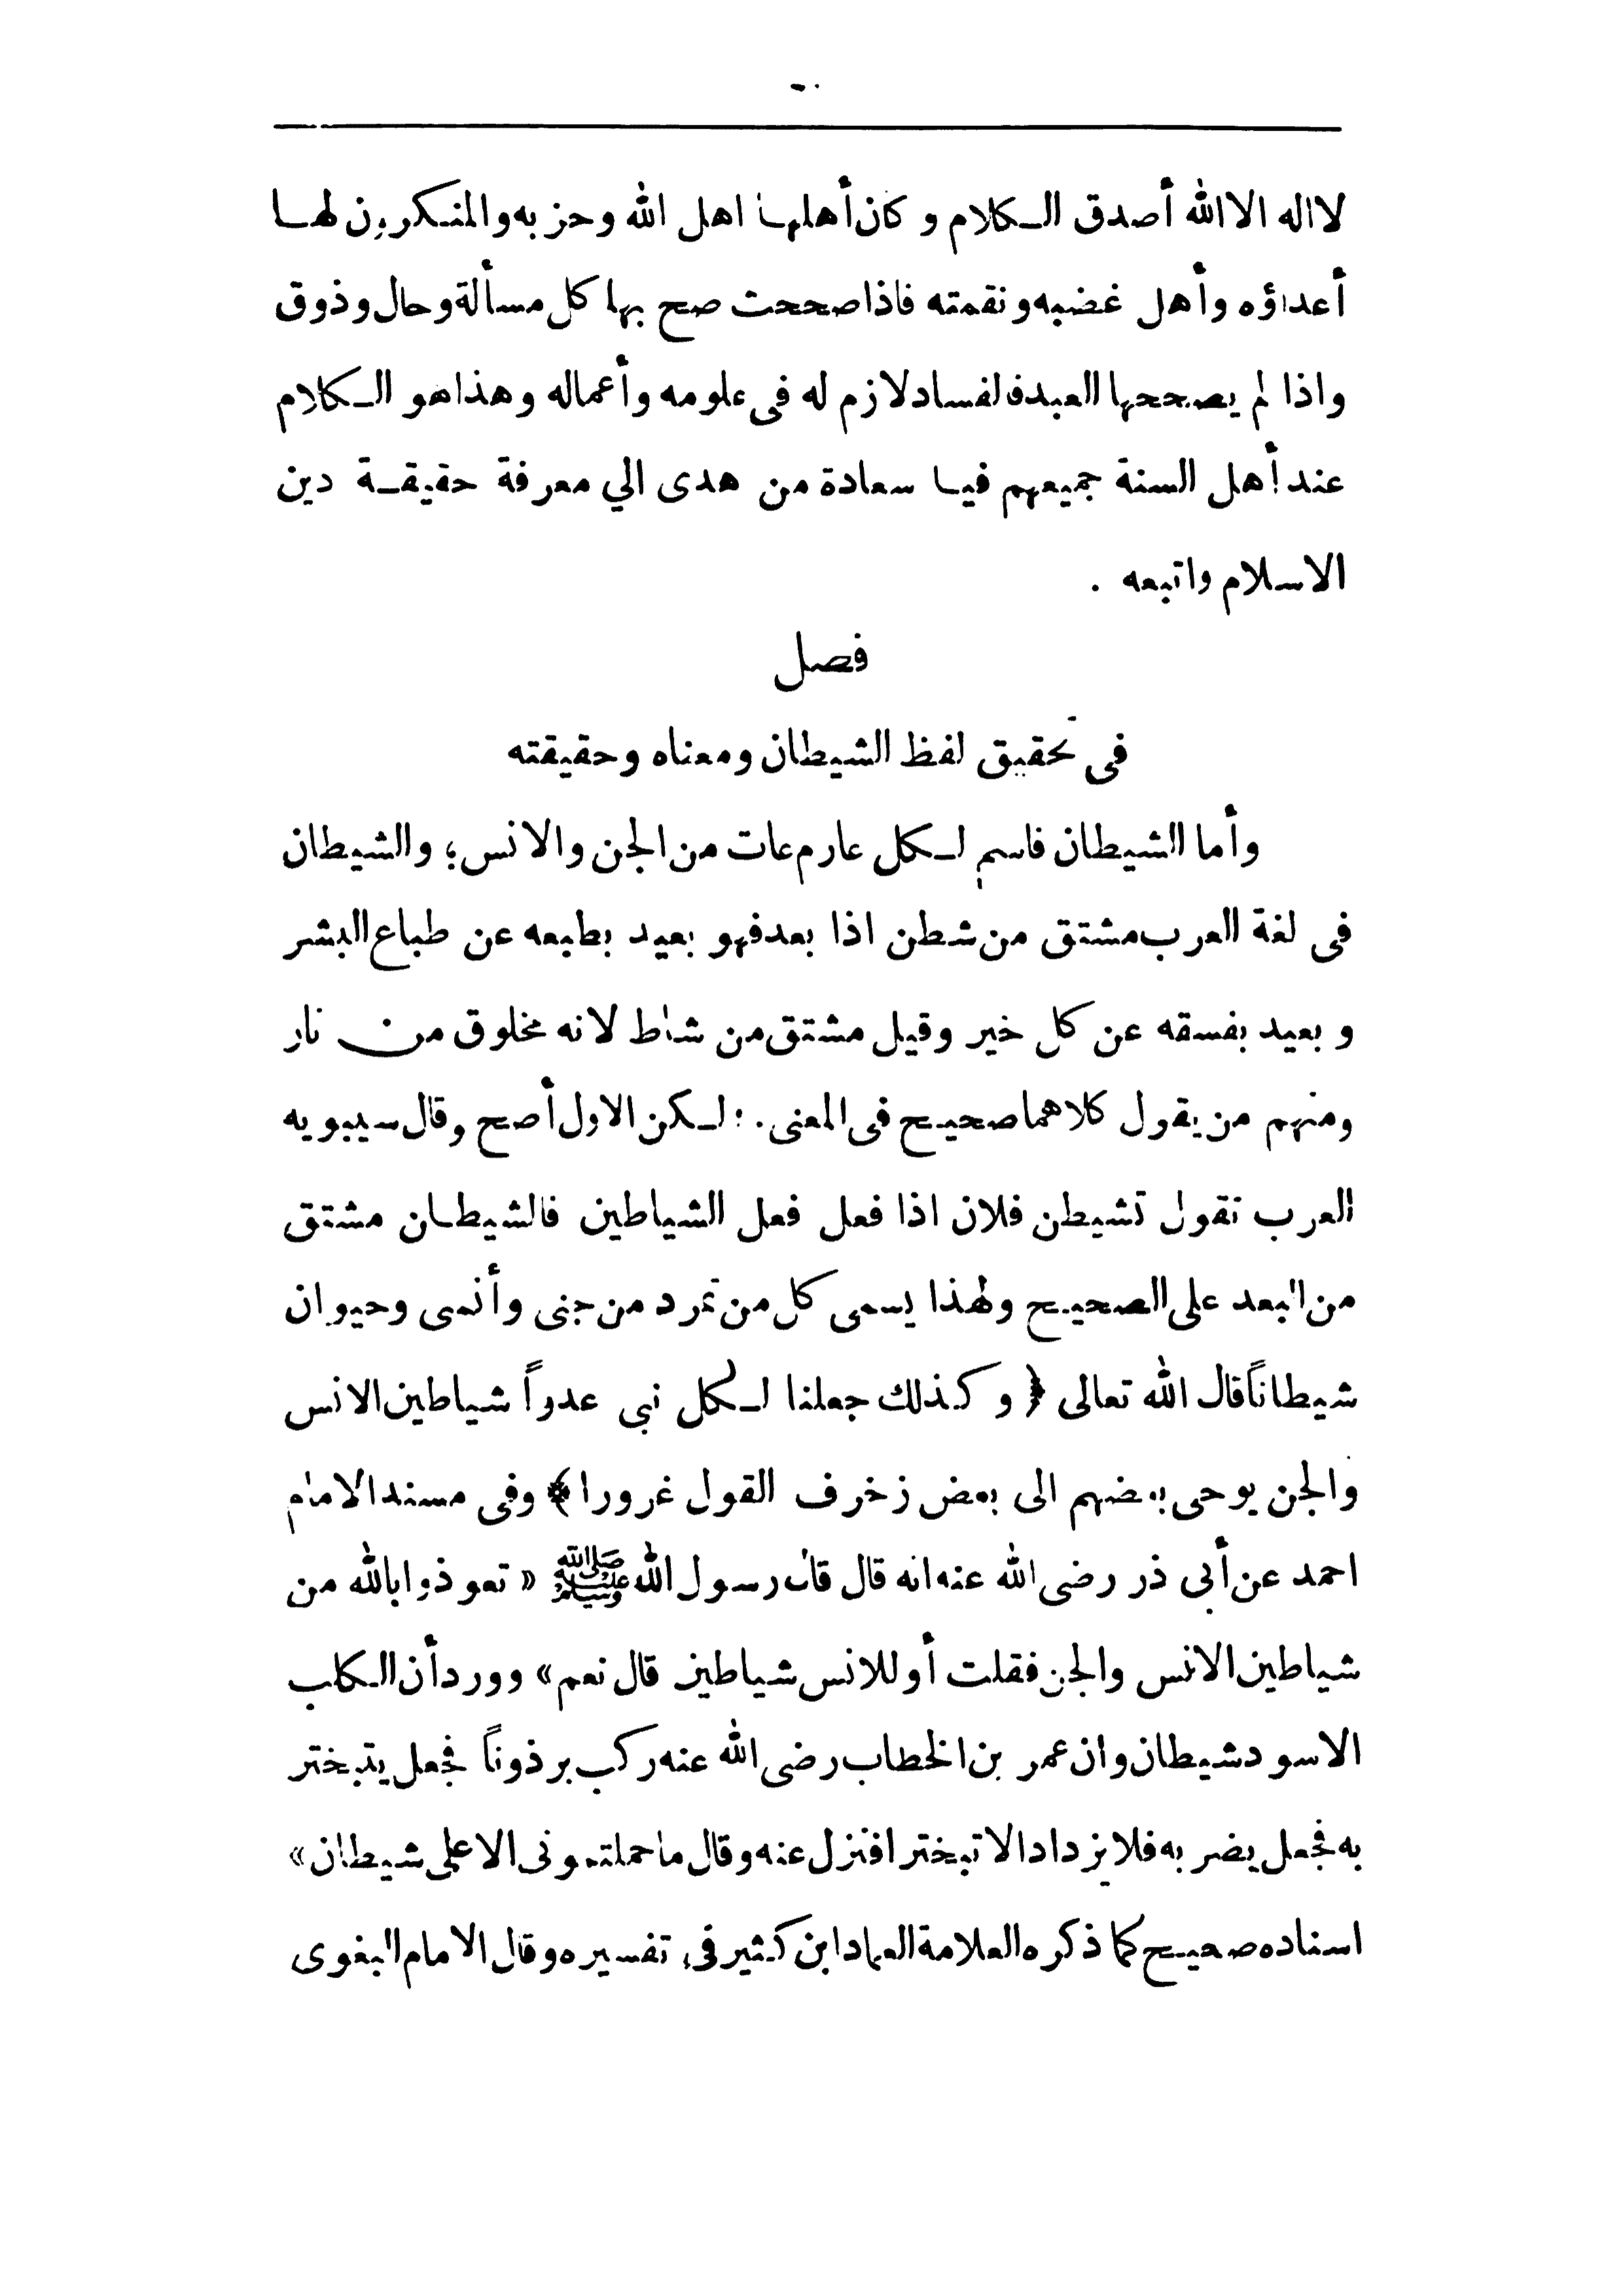 لا اله الا الله أصدق الكلام وكان أهلها اهل الله وحزبه والمنكرون لها
أعداؤه وأهل غضبه ونقمته فاذا صححت صح بها كل مسألة وحال وذوق
واذا لم يصححها العبد فالفساد لازم له فى علومه وأعماله وهذا هو الكلام
عند أهل السنة جميعهم فيا سعادة من هدى الي معرفة حقيقة دين
الاسلام واتبعه .
فصل
فى تحقيق لفظ الشيطان ومعناه وحقيقته
وأما الشيطان فاسم لكل عارم عات من الجن والانس؛ والشيطان
فى لغة العرب مشتق من شطن اذا بعد فهو بعيد بطبعه عن طباع البشر
وبعيد بفسقه عن كل خير وقيل مشتق من شاط لانه مخلوق من نار
ومنهم من يقول كلاهما صحيح فى المعنى. ؛ لكن الاول أصح وقال سيبويه
العرب تقول تشيطن فلان اذا فعل فعل الشياطين فالشيطان مشتق
من البعد على الصحيح ولهذا يسمى كل من تمرد من جنى وأنسى وحيوان
شيطاناً قال الله تعالى ﴿ وكذلك جعلنا لكل نبى عدواً شياطين الانس
والجن يوحى بعضهم الى بعض زخرف القول غرورا ﴾ وفى مسند الامام
احمد عن أبى ذر رضى الله عنه انه قال قال رسول الله ﷺ « تعوذوا بالله من
شياطين الانس والجن فقلت أو للانس شياطين قال نعم » وورد أن الكلب
الاسود شيطان وان عمر بن الخطاب رضى الله عنه ركب برذوناً فجعل يتبختر
به فجعل يضربه فلا يزداد الا تبخترا فنزل عنه وقال ما حملتمونى الا على شيطان »
اسناده صحيح كما ذكره العلامة العماد ابن كثير فى تفسيره وقال الامام البغوى